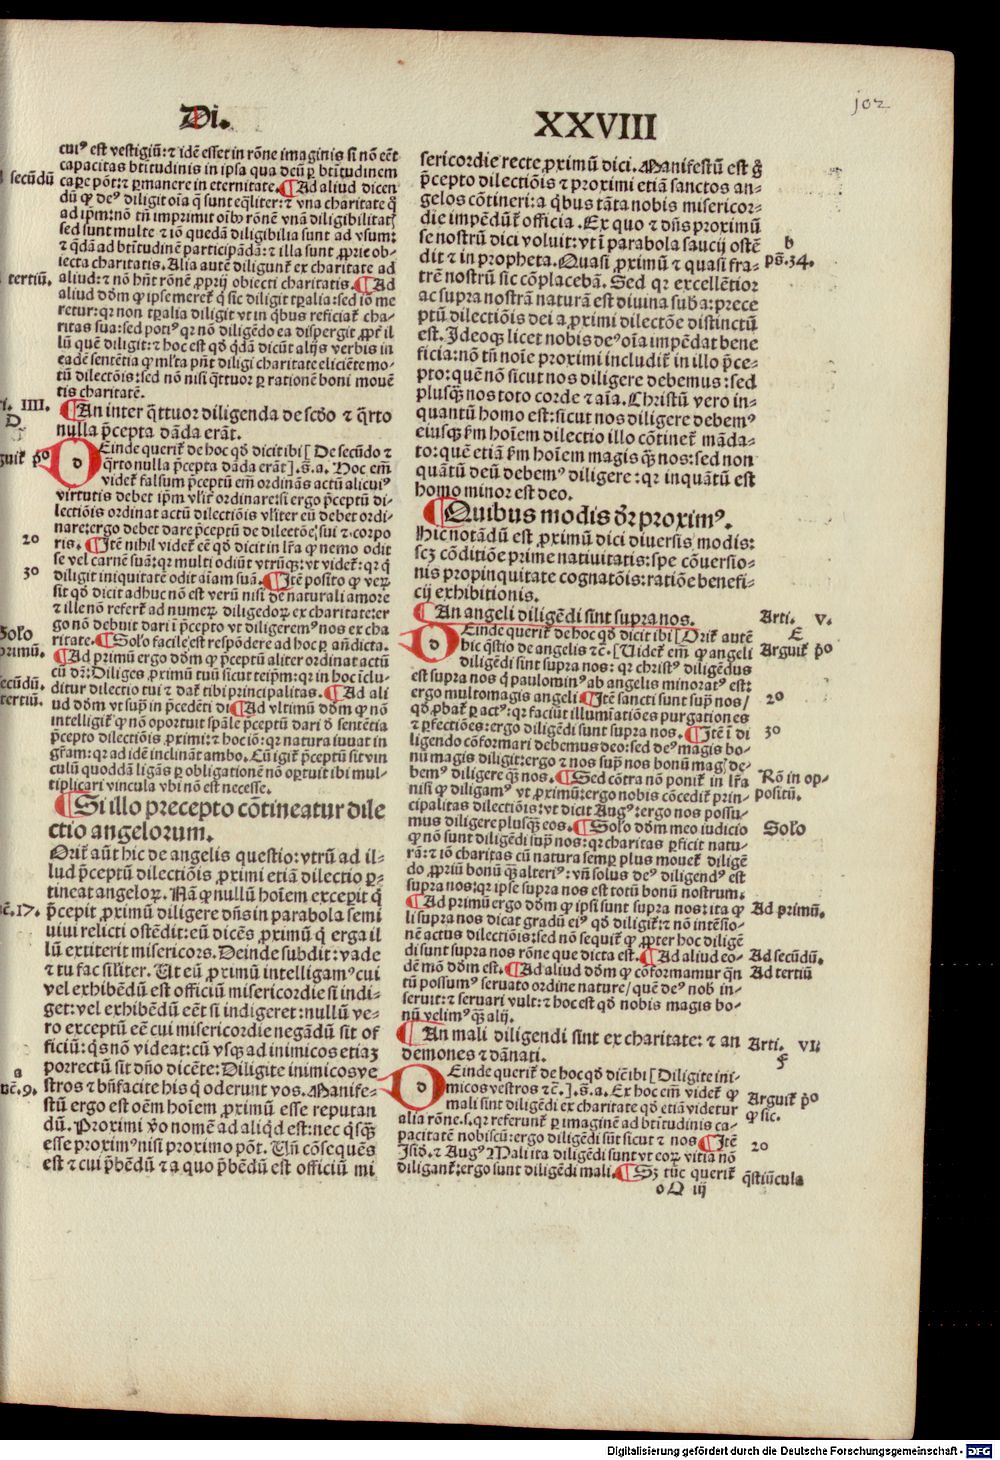 Di.
XXVIII
102
cuiꝰ est vestigiū: ⁊ idē esset in rōne imaginis si nō eēt
capacitas btītudinis in ipsa qua deū ꝑ btītudinem
caꝑe pōt: ⁊ ꝑmanere in eternitate. ¶ Ad aliud dicen
dū ꝙ deꝰ diligit oīa q̄ sunt eqͣliter: ⁊ vna charitate q̄
ad ip̄m: nō tn̄ imprimit oībꝰ rōnē vnā diligibilitatꝭ
sed sunt multe ⁊ iō quedā diligibilia sunt ad vsum:
⁊ q̄dā ad btītudinē participādā: ⁊ illa sunt ꝓprie ob-
iecta charitatis. Alia autē diligunt̄ ex charitate ad
aliud: ⁊ nō hn̄t rōnē ꝓprij obiecti charitatis. ¶ Ad
aliud dōm ꝙ ipse meret̄ q̄ sic diligit tꝑalia: sed iō me
retur: qꝛ non tꝑalia diligit vt in qͥbus reficiat̄ cha-
ritas sua: sed potiꝰ qꝛ nō diligēdo ea dispergit ꝓpt̄ il
lū quē diligit: ⁊ hoc est qd̓ qͥdā dicūt alijs verbis in
eadē sentētia ꝙ ml̓ta pn̄t diligi charitate eliciēte mo-
tū dilectōis: sed nō nisi q̄ttuor ꝑ rationē boni mouē
tis charitatē.
¶ An inter q̄ttuor diligenda de scd̓o ⁊ q̄rto
nulla p̄cepta dāda erāt.
Deinde querit̄ de hoc qd̓ dicit ibi [De secūdo ⁊
q̄rto nulla p̄cepta dāda erāt]. s̄.a. Hoc em̄
videt̄ falsum p̄ceptū em̄ ordinās actū alicuiꝰ
virtutis debet ip̄m vl̓r ordinare: si ergo p̄ceptū di-
lectiōis ordinat actū dilectiōis vl̓iter eū debet ordi-
nare: ergo debet dare p̄ceptū de dilectōe sui ⁊ corpo
ris. ¶ Itē nihil videt̄ eē qd̓ dicit in lr̄a ꝙ nemo odit
se vel carnē suā: qꝛ multi odiūt vtrūqꝫ: vt videt̄: qꝛ q̄
diligit iniquitatē odit aīam suā. ¶ Itē posito ꝙ veꝝ
sit qd̓ dicit adhuc nō est verū nisi de naturali amore
⁊ ille nō refert̄ ad numeꝝ diligēdoꝝ ex charitate: er
go nō debuit dari ī p̄cepto vt diligeremꝰ nos ex cha
ritate. ¶ Solo facile est respōdere ad hoc ꝑ an̄dicta.
¶ Ad primū ergo dōm ꝙ p̄ceptū aliter ordinat actū
cū dr̄: Diliges ꝓximū tuū sicut teip̄m: qꝛ in hoc īclu-
ditur dilectio tui ⁊ dat̄ tibi principalitas. ¶ Ad ali
ud dōm vt sup̄ in p̄cedēti di ¶ Ad vltimū dōm ꝙ nō
intelligit̄ ꝙ nō oportuit spāle p̄ceptū dari d̓ sentētia
p̄cepto dilectiōis ꝓximi: ⁊ hoc iō: qꝛ natura iuuat in
gr̄am: qꝛ ad idē inclināt ambo. Cū igit̄ p̄ceptū sit vin
culū quoddā ligās ꝑ obligationē nō oꝑtuit ibi mul-
tiplicari vincula vbi nō est necesse.
¶ Si illo precepto cōtineatur dile
ctio angelorum.
Orit̄ aūt hic de angelis questio: vtrū ad il-
lud p̄ceptū dilectiōis ꝓximi etiā dilectio ꝑ-
tineat angeloꝝ. Nā ꝙ nullū hoīem exceꝑit q̄
p̄cepit ꝓximū diligere dn̄s in parabola semi
uiui relicti ostēdit: eū dicēs ꝓximū q̄ erga il
lū extiterit misericors. Deinde subdit: vade
⁊ tu fac sil̓iter. Ut eū ꝓximū intelligamꝰ cui
vel exhibēdū est officiū misericordie si indi-
get: vel exhibēdū eēt si indigeret: nullū ve-
ro exceptū eē cui misericordie negādū sit of
ficiū: qͥs nō videat: cū vsqꝫ ad inimicos etiaꝫ
porrectū sit dn̄o dicēte: Diligite inimicos ve
stros ⁊ bn̄facite his q̄ oderunt vos. Manife-
stū ergo est oēm hoīem ꝓximū esse reputan
dū. Proximi v̓o nomē ad aliqͥd est: nec qͥsqͣꝫ
esse proximꝰ nisi proximo pōt. Un̄ cōsequēs
est ⁊ cui p̄bēdū ⁊ a quo p̄bēdū est officiū mi
sericordie recte ꝓximū dici. Manifestū est g̓
p̄cepto dilectiōis ⁊ proximi etiā sanctos an-
gelos cōtineri: a qͥbus tāta nobis misericor-
die impēdūt̄ officia. Ex quo ⁊ dn̄s proximū
se nostrū dici voluit: vt ī parabola saucij ostē
dit ⁊ in propheta. Quasi ꝓximū ⁊ quasi fra-
trē nostrū sic cōplacebā. Sed qꝛ excellētior
ac supra nostrā naturā est diuina sub̓a: prece
ptū dilectiōis dei a ꝓximi dilectōe distinctū
est. Ideoqꝫ licet nobis deꝰ oīa impēdat bene
ficia: nō tn̄ noīe proximi includit̄ in illo p̄ce-
pto: quē nō sicut nos diligere debemus: sed
plusqͣꝫ nos toto corde ⁊ aīa. Christū vero in-
quantū homo est: sicut nos diligere debemꝰ
eiusqꝫ s̄m hoīem dilectio illo cōtinet̄ mādā-
to: quē etiā s̄m hoīem magis qͣꝫ nos: sed non
quātū deū debemꝰ diligere: qꝛ inquātū est
homo minor est deo.
¶ Quibus modis dr̄ proximꝰ.
Hic notādū est ꝓximū dici diuersis modis:
scꝫ cōditiōe prime natiuitatis: spe cōuersio-
nis propinquitate cognatōis: ratiōe benefi-
cij exhibitionis.
¶ An angeli diligēdi sint supra nos.
Deinde querit̄ de hoc qd̓ dicit ibi [Orit̄ autē
hic q̄stio de angelis ⁊c̄. [Uidet̄ em̄ ꝙ angeli
diligēdi sint supra nos: qꝛ christꝰ diligēdus
est supra nos q̄ paulominꝰ ab angelis minoratꝰ est:
ergo multomagis angeli ¶ Itē sancti sunt sup̄ nos/
qd̓ ꝓbat̄ ꝑ actꝰ: qꝛ faciūt illumīatiōes purgationes
⁊ ꝑfectiōes: ergo diligēdi sunt supra nos. ¶ Itē ī di
ligendo cōformari debemus deo: sed deꝰ magis bo-
nū magis diligit: ergo ⁊ nos sup̄ nos bonū magꝭ de-
bemꝰ diligere qͣꝫ nos. ¶ Sed cōtra nō ponit̄ in lr̄a
nisi ꝙ diligamꝰ vt ꝓximū: ergo nobis cōcedit̄ prin-
cipalitas dilectiōis: vt dicit Augꝰ: ergo nos possu-
mus diligere plusqͣꝫ eos. ¶ Solo dōm meo iudicio
ꝙ nō sunt diligēdi sup̄ nos: qꝛ charitas ꝑficit natu-
rā: ⁊ iō charitas cū natura semꝑ plus mouet̄ diligē
do ꝓpriū bonū qͣꝫ alterꝰ: vn̄ solus deꝰ diligendꝰ est
supra nos: qꝛ ipse supra nos est totū bonū nostrum.
¶ Ad primū ergo dōm ꝙ ipsi sunt supra nos: ita ꝙ
li supra nos dicat gradū eiꝰ qd̓ diligit̄: ⁊ nō intēsio-
nē actus dilectiōis: sed nō sequit̄ ꝙ ꝓpter hoc diligē
di sunt supra nos rōne que dicta est. ¶ Ad aliud eo-
dē mō dōm est. ¶ Ad aliud dōm ꝙ cōformamur qn̄
tū possumꝰ seruato ordine nature/ quē deꝰ nob̓ in-
seruit: ⁊ seruari vult: ⁊ hoc est qd̓ nobis magis bo-
nū velimꝰ qͣꝫ alij.
¶ An mali diligendi sint ex charitate: ⁊ an
demones ⁊ dānati.
Deinde querit̄ de hoc qd̓ dicit ibi [Diligite ini-
micos vestros ⁊c̄.]. s̄.a. Ex hoc em̄ videt̄ ꝙ
mali sint diligēdi ex charitate qd̓ etiā videtur
alia rōne. s. qꝛ referunt̄ ꝑ imaginē ad btītudinis ca-
pacitatē nobiscū: ergo diligēdi sūt sicut ⁊ nos ¶ Itē
Isid̓. ⁊ Augꝰ Mali ita diligēdi sunt vt eoꝝ vitia nō
diligant̄: ergo sunt diligēdi mali. ¶ Sꝫ tūc querit̄
oQ iij
secūdū
tertiū.
IIII.
D
20
30
Solo
primū.
secūdū.
tertiū.
17.
a
9.
b
pͣs. 34.
Arti. v.
E
Arguit̄ p̄o
20
30
Rō in op-
positū.
Solo
Ad primū.
Ad secūdū.
Ad tertiū
Arti. VI.
F
Arguit̄ p̄o
ꝙ sic.
20
q̄stiūcula
Digitalisierung gefördert durch die Deutsche Forschungsgemeinschaft - DFG